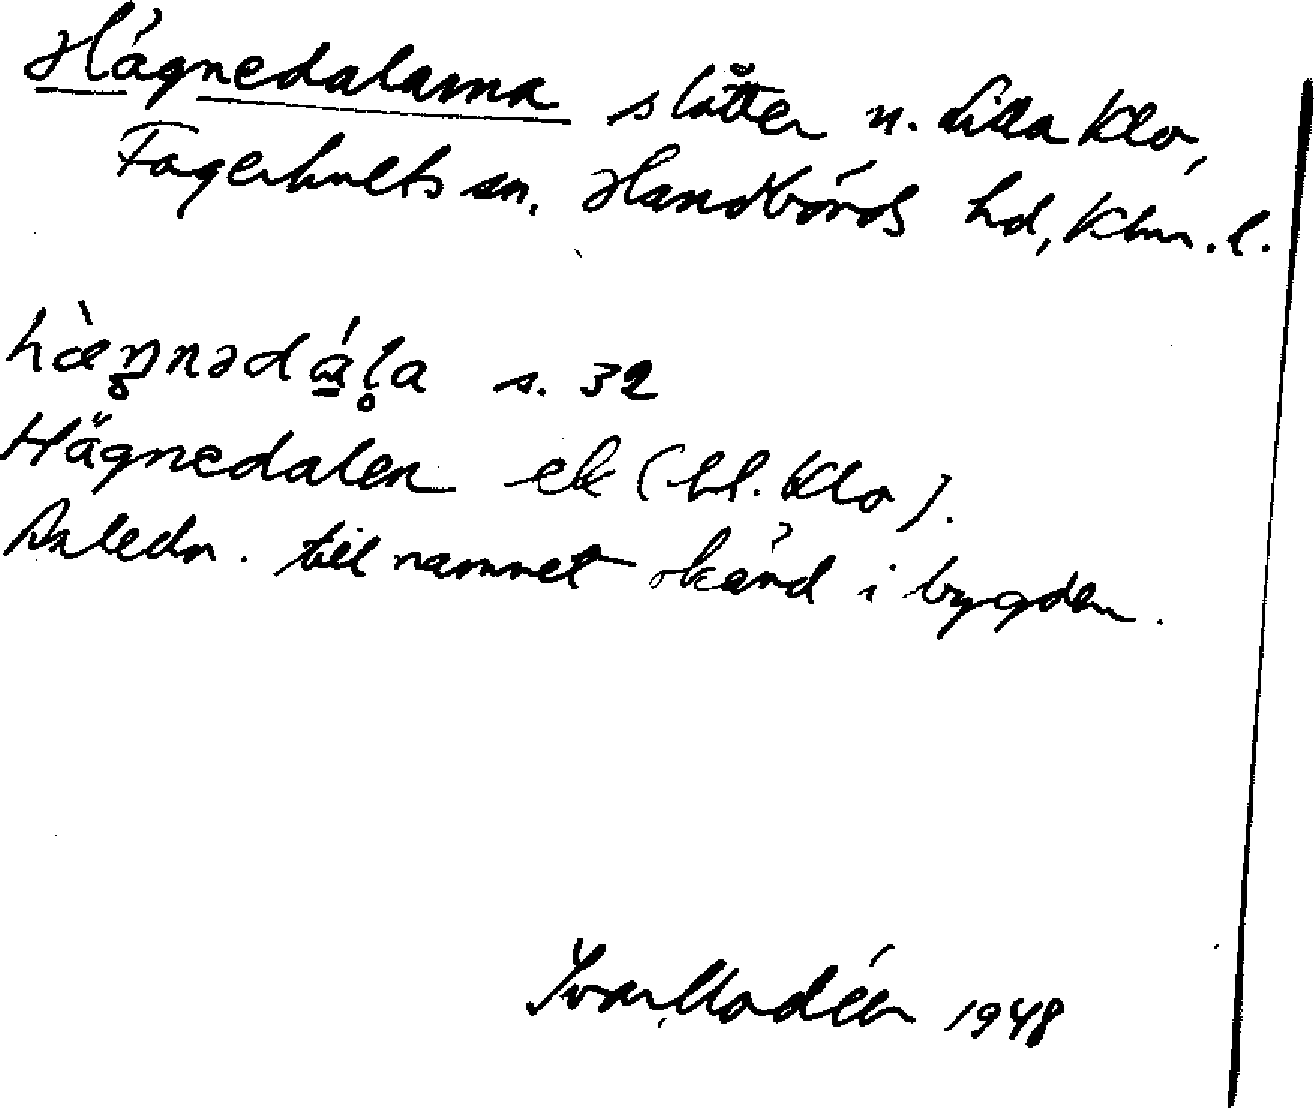 Hägnedalarna slåtter n. Lilla Klo,
Fagerhults sn. Handbörds hd, Klm. l.
hæ̀ŋ̥nədɑ́l̥a s. 32
Hägnedalen ek (bl. Klo).
Anledn. till namnet okänd i bygden.
Ivar Modéer 1948